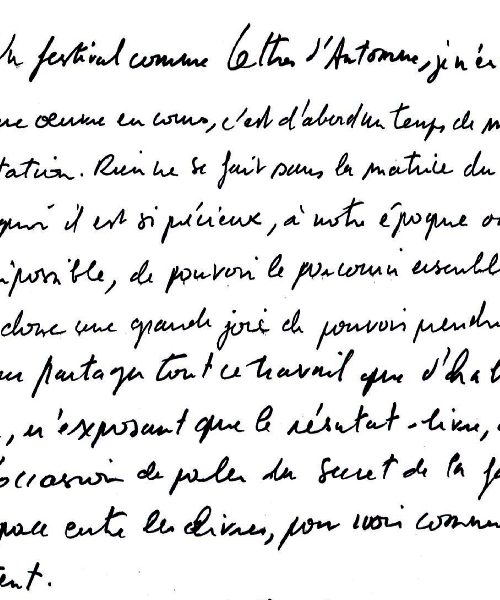 Un festival comme Lettres d'Automne, je n'en
une œuvre en cours, c'est d'abord un temps de m
tation. Rien ne se fait sans la matrice du
quoi il est si précieux, à notre époque où
mpossible, de pouvoir le parcourir ensemble
donc une grande joie de pouvoir prendre
partager tout ce travail que d'habi
, n'exposant que le résultat - livre,
occasion de parler du secret de la
pace entre les livres, pour voir comme
tent.